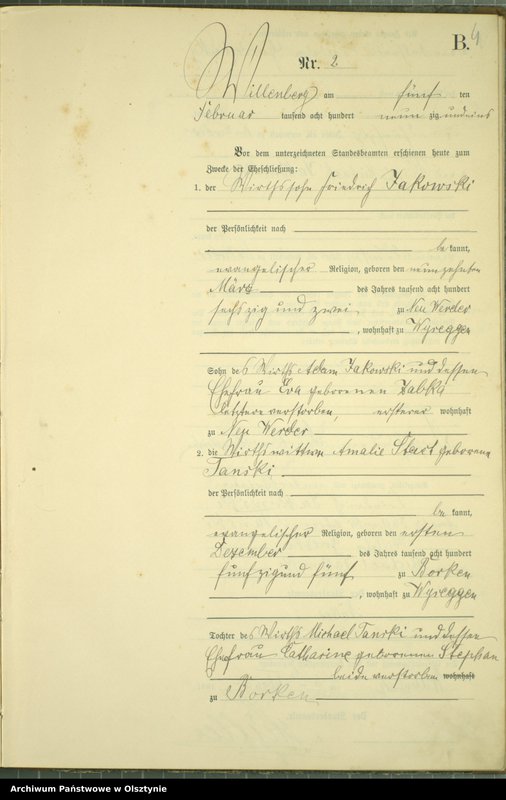 B. 4
Nr. 2
Willenberg am fünf ten
Februar tausend acht hundert neun zig und eins
Vor dem unterzeichneten Standesbeamten erschienen heute zum
Zwecke der Eheschließung:
1. der Wirthssohn Friedrich Jakowski
der Persönlichkeit nach
be kannt,
evangelischer Religion, geboren den neunzehnten
März des Jahres tausend acht hundert
sechszig und zwei zu Neu Werder
, wohnhaft zu Wyreggen
Sohn des Wirths Adam Jakowski und dessen
Ehefrau Eva geborenen Zabki
letztere verstorben, ersterer wohnhaft
zu Neu Werder
2. die Wirthswittwe Amalie geborene
Tanski
der Persönlichkeit nach
be kannt,
evangelischer Religion, geboren den ersten
Dezember des Jahres tausend acht hundert
fünfzig und fünf zu Borken
, wohnhaft zu Wyreggen
Tochter des Wirths Michael Tanski und dessen
Ehefrau Catharine geborenen Stephan
beide verstorben wohnhaft
zu Borken
Archiwum Państwowe w Olsztynie